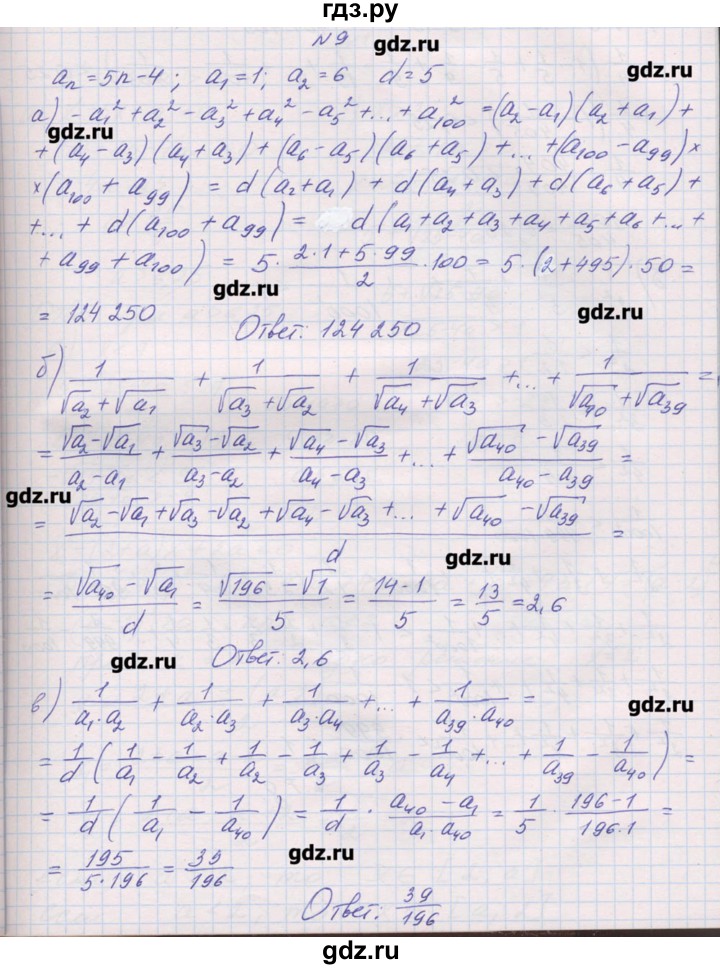 гдз.ру
№9
gdz.ru
aₙ = 5n - 4; a₁ = 1; a₂ = 6 d = 5
gdz.ru
а) -a₁² + a₂² - a₃² + a₄² - a₅² + ... + a₁₀₀² = (a₂ - a₁)(a₂ + a₁) +
gdz.ru
+ (a₄ - a₃)(a₄ + a₃) + (a₆ - a₅)(a₆ + a₅) + ... + (a₁₀₀ - a₉₉) ×
gdz.ru
× (a₁₀₀ + a₉₉) = d(a₂ + a₁) + d(a₄ + a₃) + d(a₆ + a₅) +
+ ... + d(a₁₀₀ + a₉₉) = d(a₁ + a₂ + a₃ + a₄ + a₅ + a₆ + ... +
+ a₉₉ + a₁₀₀) = 5 · (2·1 + 5·99)/2 · 100 = 5 · (2 + 495) · 50 =
gdz.ru
= 124 250
gdz.ru
Ответ: 124 250
б) 1/(√a₂ + √a₁) + 1/(√a₃ + √a₂) + 1/(√a₄ + √a₃) + ... + 1/(√a₄₀ + √a₃₉) =
= (√a₂ - √a₁)/(a₂ - a₁) + (√a₃ - √a₂)/(a₃ - a₂) + (√a₄ - √a₃)/(a₄ - a₃) + ... + (√a₄₀ - √a₃₉)/(a₄₀ - a₃₉) =
gdz.ru
= (√a₂ - √a₁ + √a₃ - √a₂ + √a₄ - √a₃ + ... + √a₄₀ - √a₃₉)/d =
gdz.ru
= (√a₄₀ - √a₁)/d = (√196 - √1)/5 = (14 - 1)/5 = 13/5 = 2,6
gdz.ru
Ответ: 2,6
в) 1/(a₁·a₂) + 1/(a₂·a₃) + 1/(a₃·a₄) + ... + 1/(a₃₉·a₄₀) =
gdz.ru
= 1/d (1/a₁ - 1/a₂ + 1/a₂ - 1/a₃ + 1/a₃ - 1/a₄ + ... + 1/a₃₉ - 1/a₄₀) =
= 1/d (1/a₁ - 1/a₄₀) = 1/d · (a₄₀ - a₁)/(a₁·a₄₀) = 1/5 · (196 - 1)/(196·1) =
gdz.ru
= 195/(5·196) = 39/196
Ответ: 39/196
gdz.ru
gdz.ru